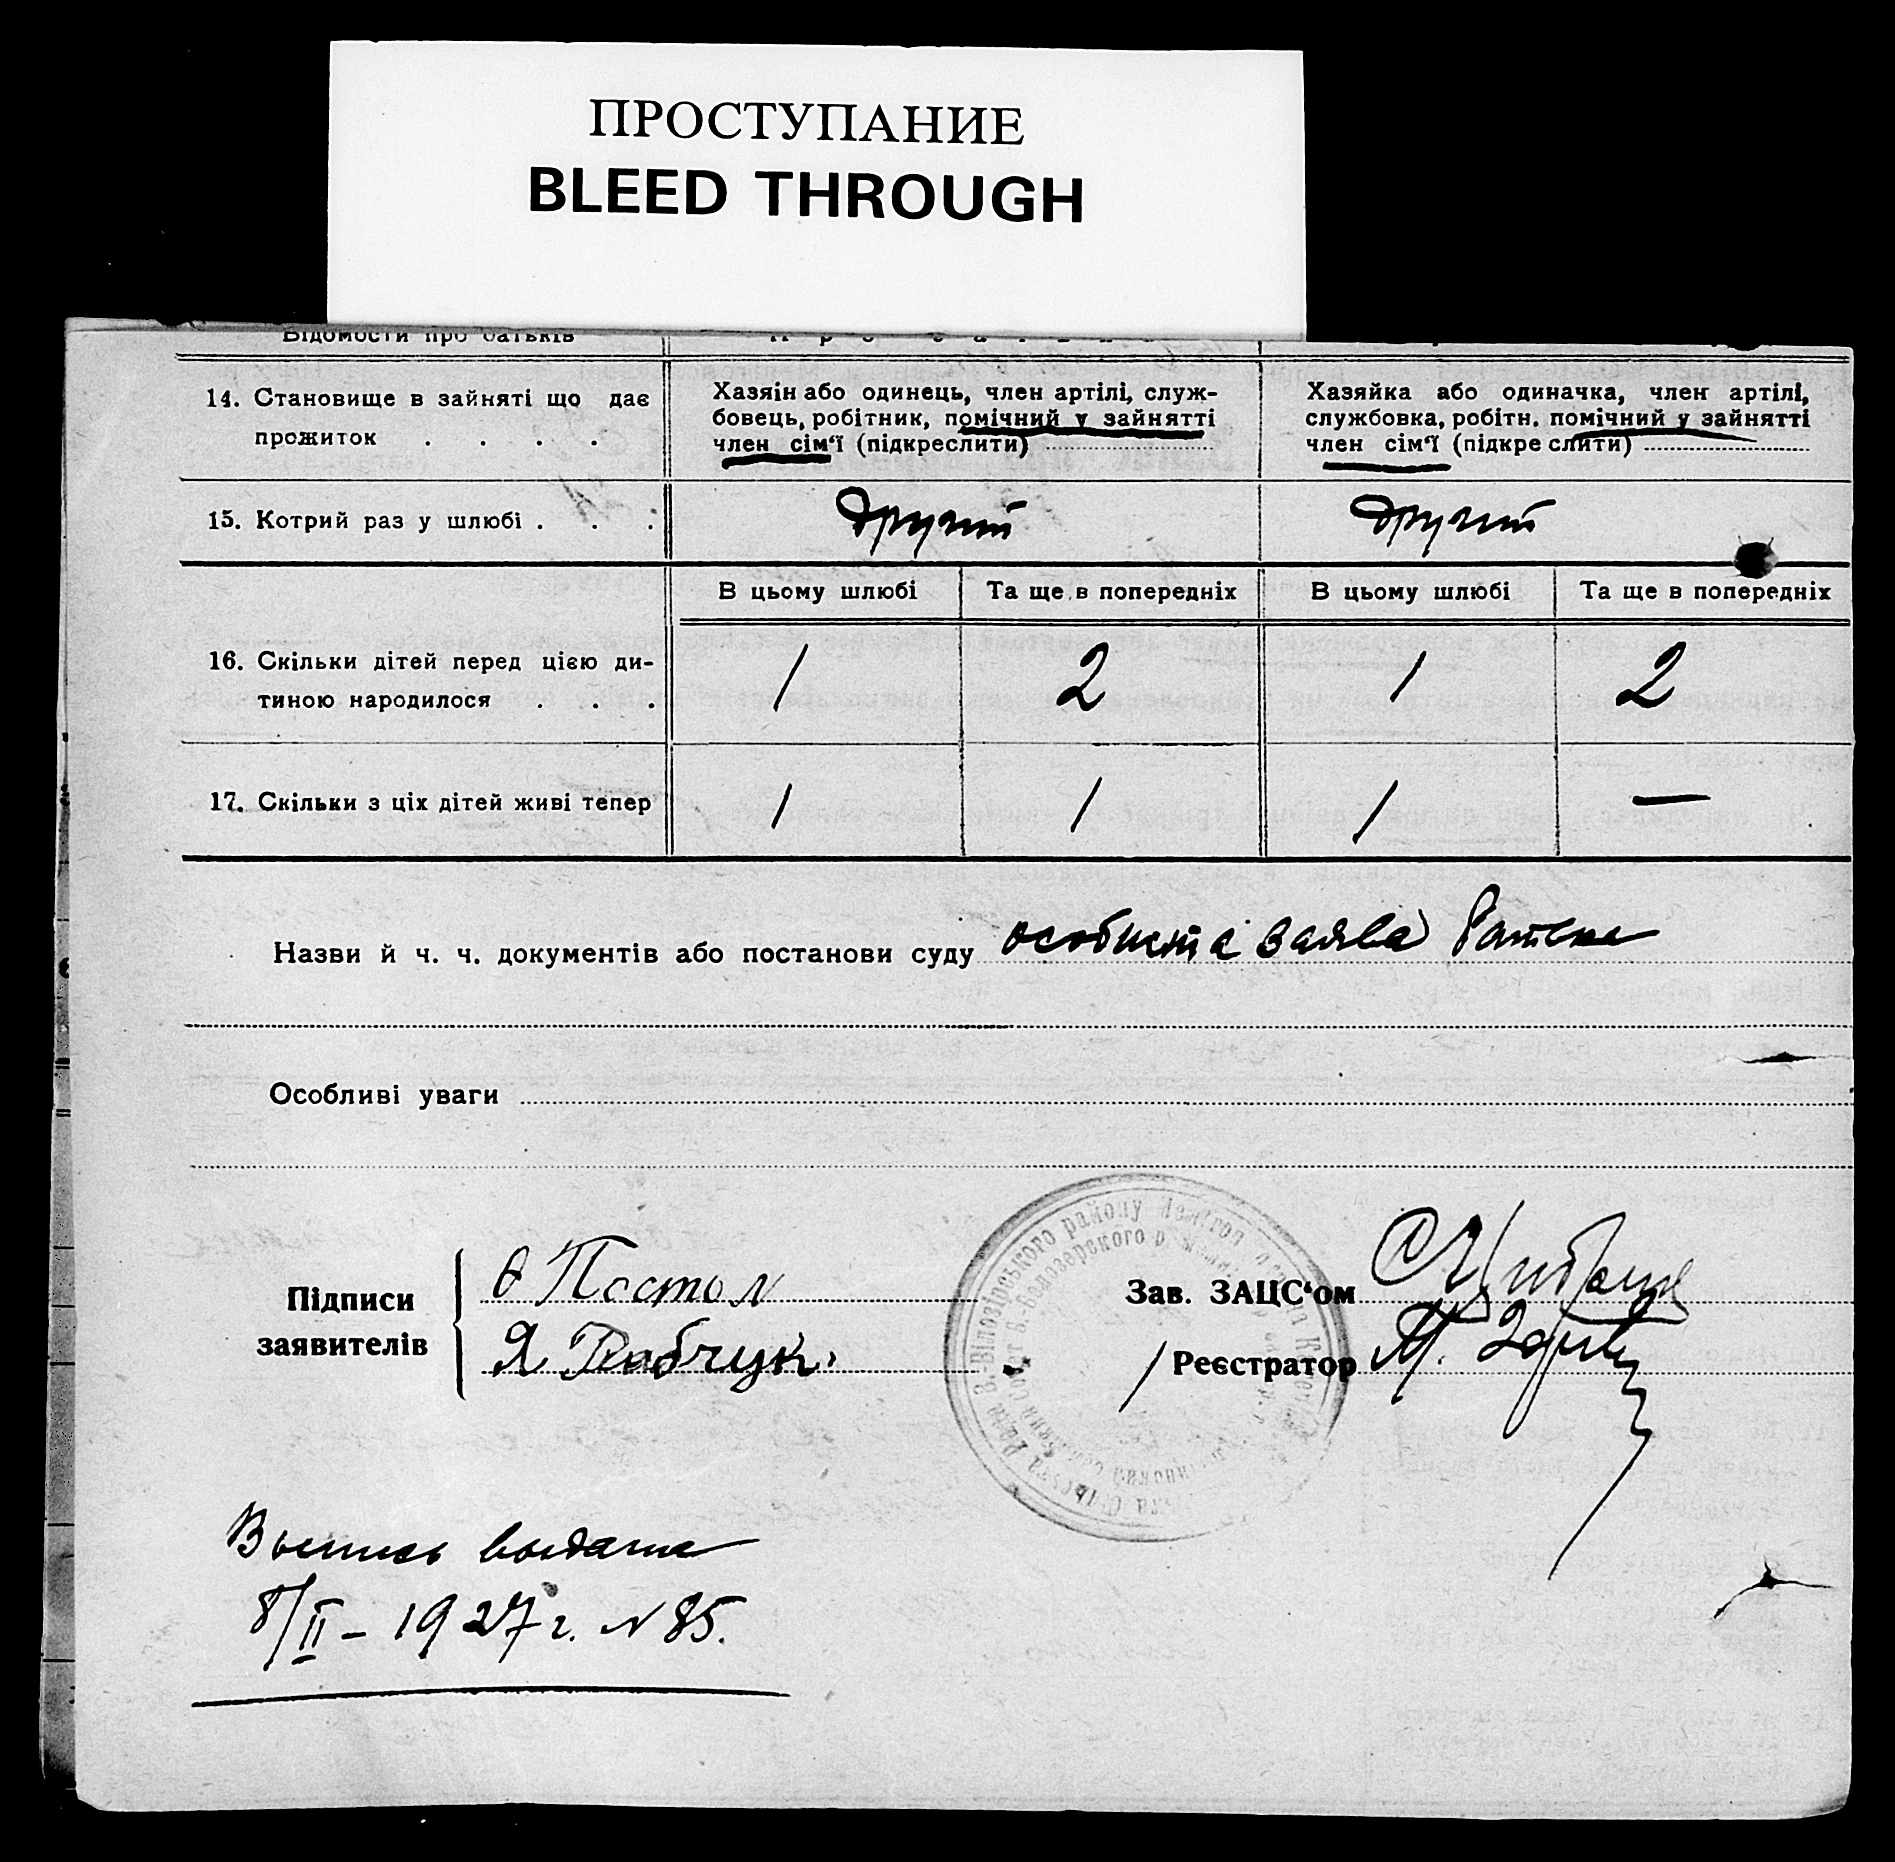 ПРОСТУПАНИЕ
BLEED THROUGH
Відомости про батьків
14. Становище в зайняті що дає
прожиток . . . .
Хазяін або одинець, член артілі, служ-
бовець, робітник, помічний у зайнятті
член сім'ї (підкреслити)
Хазяйка або одиначка, член артілі,
службовка, робітн. помічний у зайнятті
член сім'ї (підкреслити)
15. Котрий раз у шлюбі . . .
другий
другий
В цьому шлюбі
Та ще в попередніх
В цьому шлюбі
Та ще в попередніх
16. Скільки дітей перед цією ди-
тиною народилося . . .
1
2
1
2
17. Скільки з ціх дітей живі тепер
1
1
1
—
Назви й ч. ч. документів або постанови суду особиста заява батька
Особливі уваги
Підписи
заявителів
Постол
Я
Зав. ЗАЦС'ом
Реєстратор М.
Выпись выдана
8/II – 1927 г. N 85.